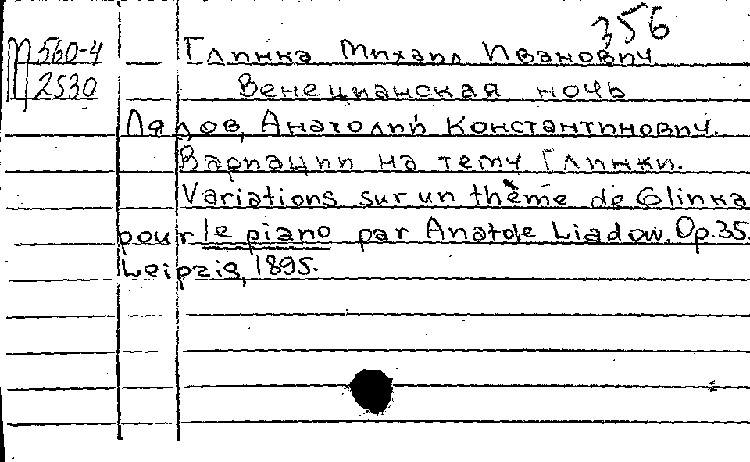 356
560-4 Глинка Михаил Иванович
2530 Венецианская ночь
Лядов, Анатолий Константинович.
Вариации на тему Глинки.
Variations sur un thème de Glinka
pour le piano par Anatole Liadow. Op. 35.
Leipzig, 1895.